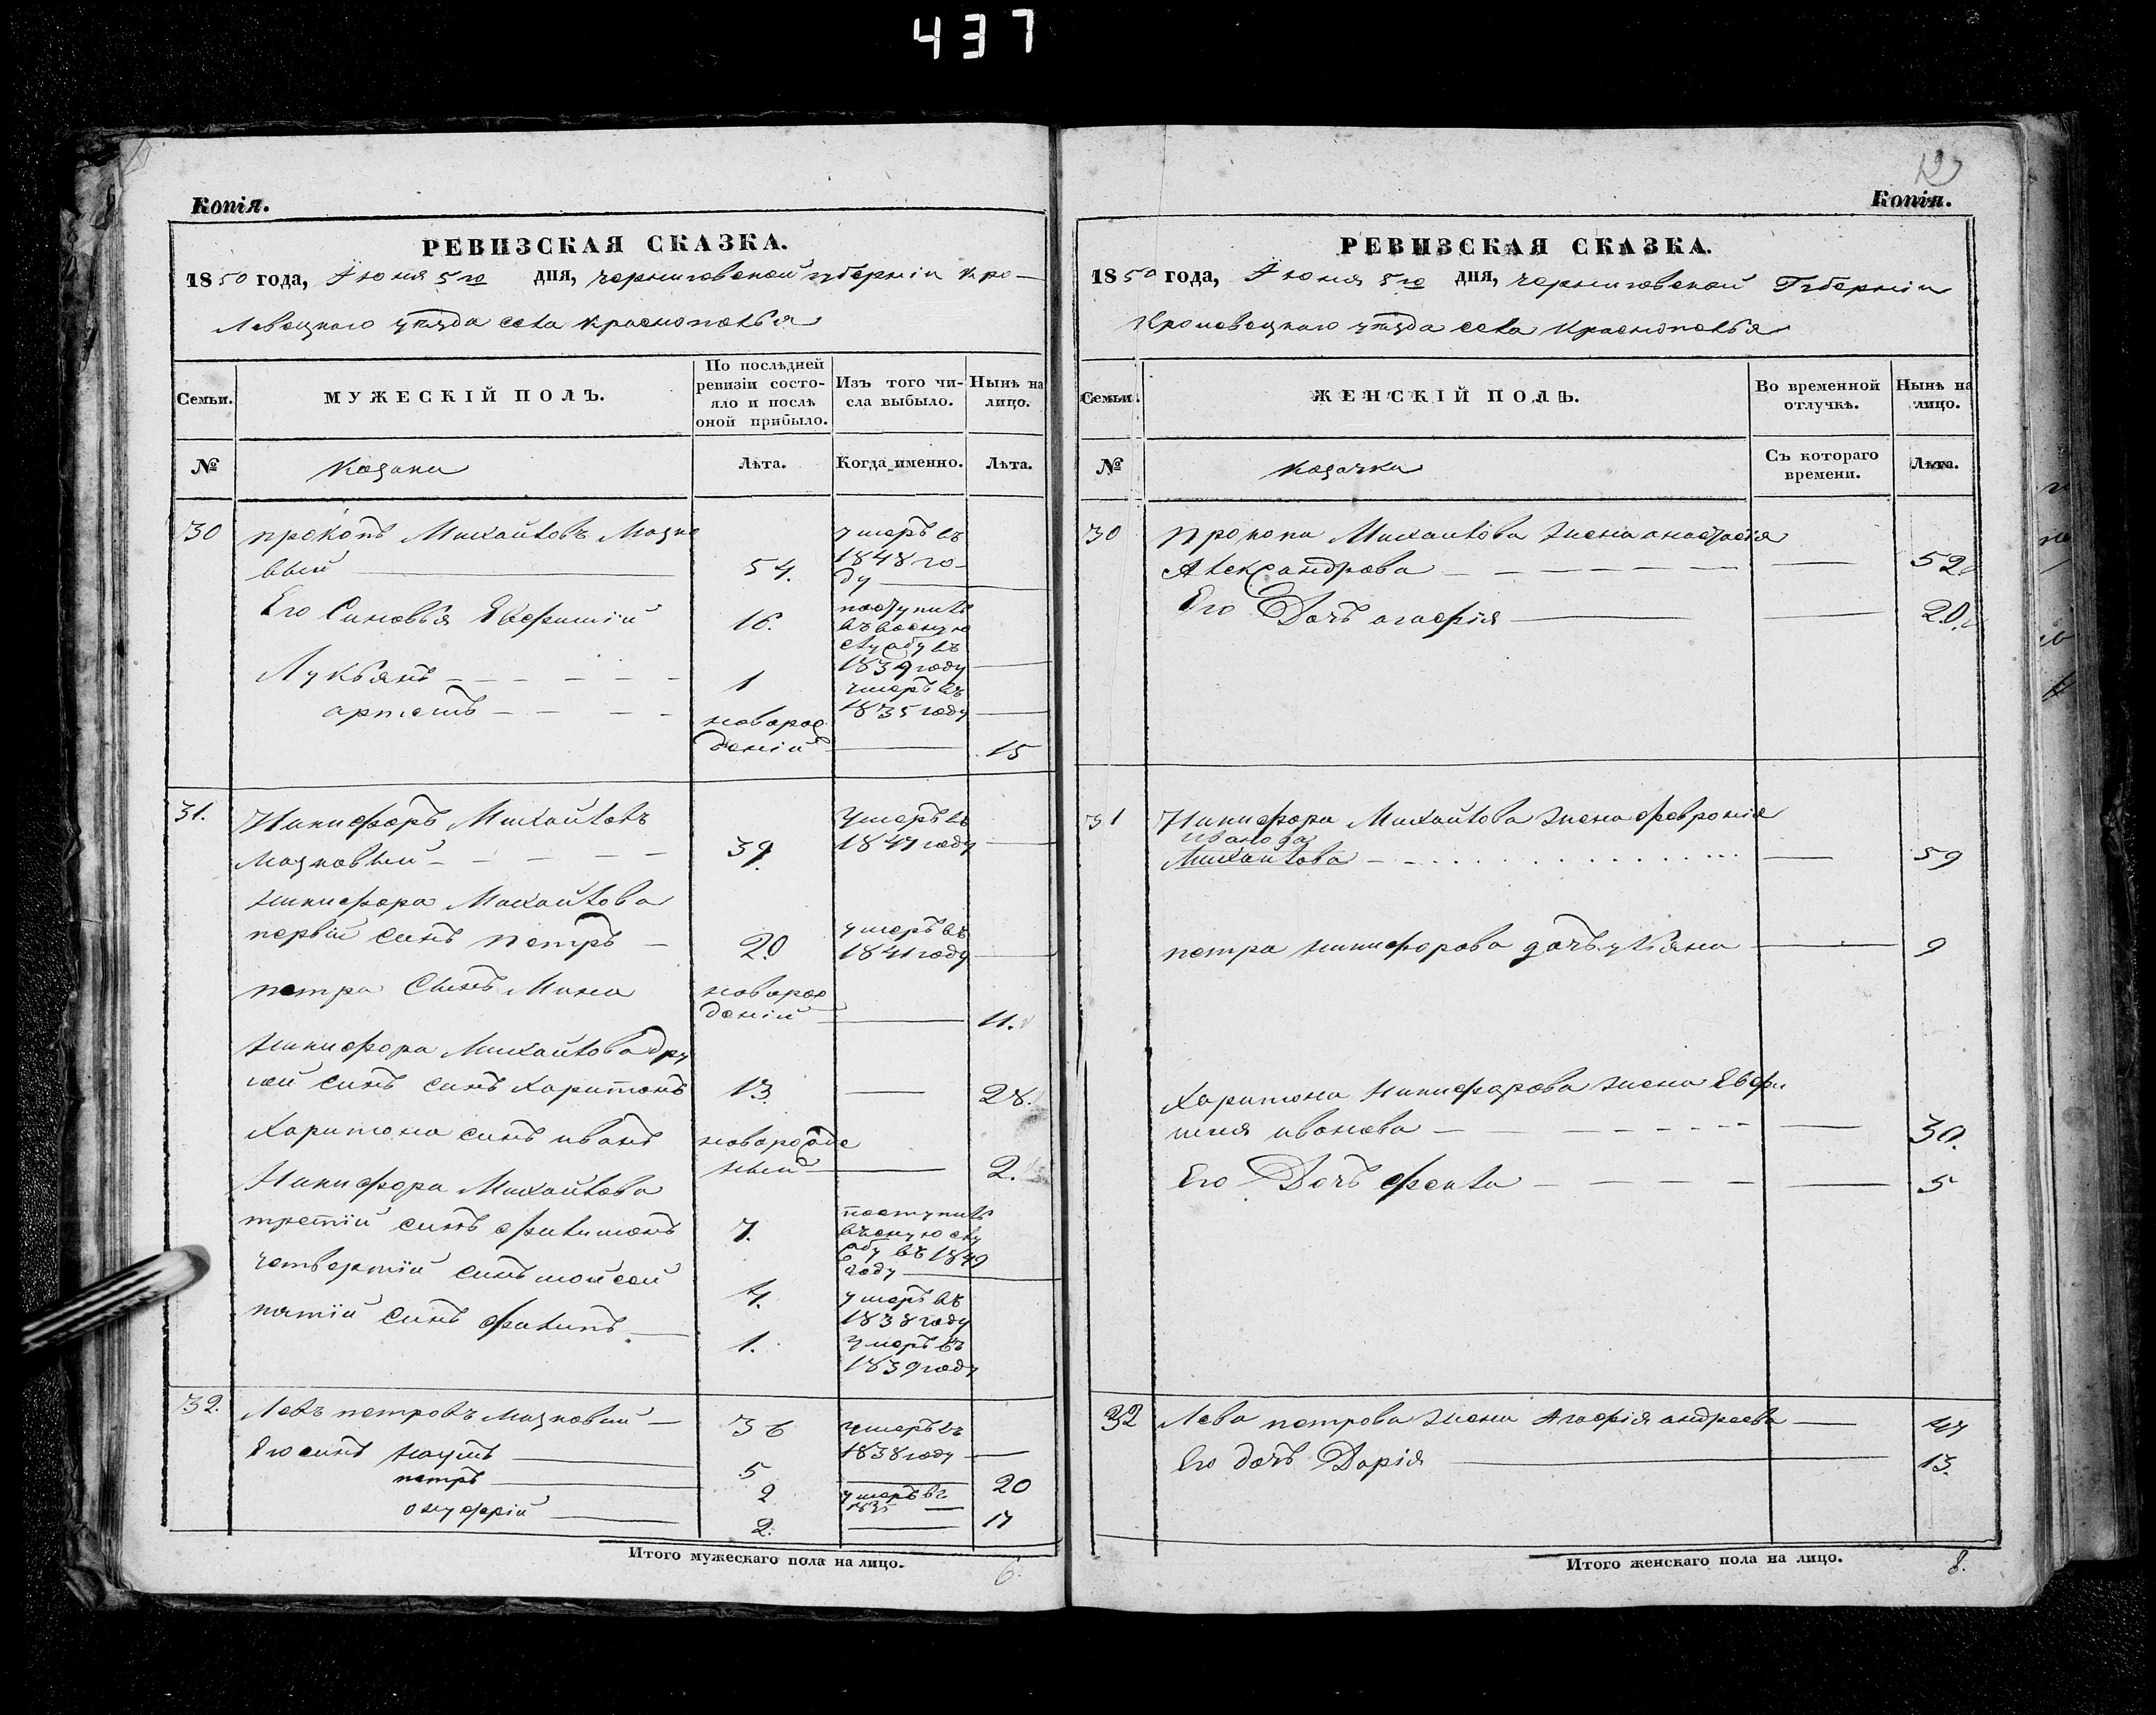 437
Копія.
РЕВИЗСКАЯ СКАЗКА.
1850 года, Июня 5го дня, черниговской губерніи Кро-
левецкаго уѣзда села Краснополья
Семьи.
МУЖЕСКІЙ ПОЛЪ.
По послѣдней ревизіи состояло и послѣ оной прибыло.
Изъ того числа выбыло.
Нынѣ на лицо.
№
Козаки
Лѣта.
Когда именно.
Лѣта.
30 прокопъ Михайловъ Мазко
вый 54. умеръ въ 1848 году
Его Синовья Евфимій 16. поступилъ въ воєную службу въ 1839 году
Лукьянъ 1 умеръ въ 1835 году
артемъ новорожденій 15
31. Никифоръ Михайловъ
мазковый 39. Умеръ въ 1847 году
никифора Михайлова
первій синъ петръ 20 умеръ въ 1841 году
петра Сынъ Мина новорожденій 11.
никифора Михайлова дру
гой синъ синъ харитонъ 13. 28.
харитона синъ иванъ новорожденый 2.
Никифора Михайлова
третій синъ филимонъ 7. поступилъ въ службу въ 1849 году
четвертій синъ мойсей 4. умеръ въ 1838 году
пятій синъ филипъ 1. умеръ въ 1839 году
32. Левъ петровъ мазковий 36 умеръ въ 1838 году
Его синъ наумъ 5 20
петръ 2 умеръ въ 1835
онуфрій 2. 17
Итого мужескаго пола на лицо. 6.
12
Копія.
РЕВИЗСКАЯ СКАЗКА.
1850 года, Июня 5го дня, черниговской Губерніи
Кролевецкаго уѣзда села Краснополья
Семьи.
ЖЕНСКІЙ ПОЛЪ.
Во временной отлучкѣ.
Нынѣ на лицо.
№
козачки
Съ котораго времени.
Лѣта.
30 прокопа Михайлова жена анастасія
Александрова 52.
Его Дочъ агафія 20.
31 Никифора Михайлова жена февронія
иванова
Михайлова 59
петра никифорова дочъ улияна 9
Харитона Никифорова жена Евфи
мия иванова 30.
Его Дочъ фекла 5
32 Лева петрова жена Агафія андреева 47
Его дочъ Дарія 13.
Итого женскаго пола на лицо. 8.